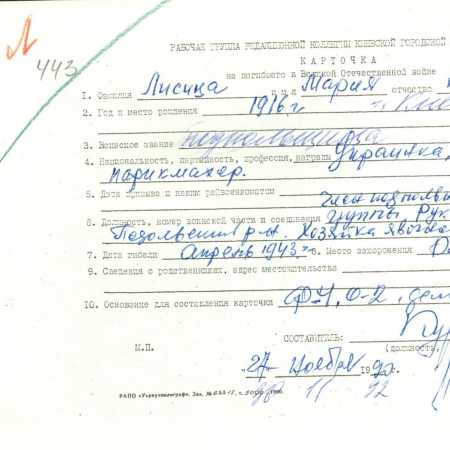 Л
443
РАБОЧАЯ ГРУППА РЕДАКЦИОННОЙ КОЛЛЕГИИ КИЕВСКОЙ ГОРОДСКОЙ
КАРТОЧКА
на погибшего в Великой Отечественной войне
1. Фамилия Лисица имя Мария отчество
2. Год и место рождения 1916 г. г. Кие
3. Воинское звание подпольщица
4. Национальность, партийность, профессия, награды Украинка,
парикмахер.
5. Дата призыва и каким райвоенкоматом
Член подполь
6. Должность, номер воинской части и соединения группы, Рук
Хозяйка явочн
7. Дата гибели Апрель 1943 г. 8. Место захоронения
9. Сведения о родственниках, адрес местожительства
10. Основание для составления карточки Ф-4, О-2, дел
СОСТАВИТЕЛЬ:
М.П. (должность,
27 Ноября 1992
11 92
РАПО «Укрвузполиграф». Зак. т. 5000 1990.